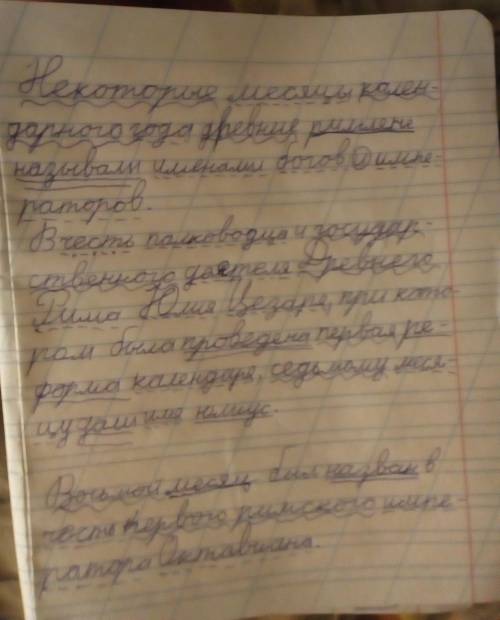 Некоторые месяцы кален-
дарного года древние римляне
называли именами богов, и импе-
раторов.
В честь полководца и государ-
ственного деятеля Древнего
Рима Юлия Цезаря, при кото-
ром была проведена первая ре-
форма календаря, седьмому меся-
цу дали имя юлиус.
Восьмой месяц был назван в
честь первого римского импе-
ратора Октавиана.